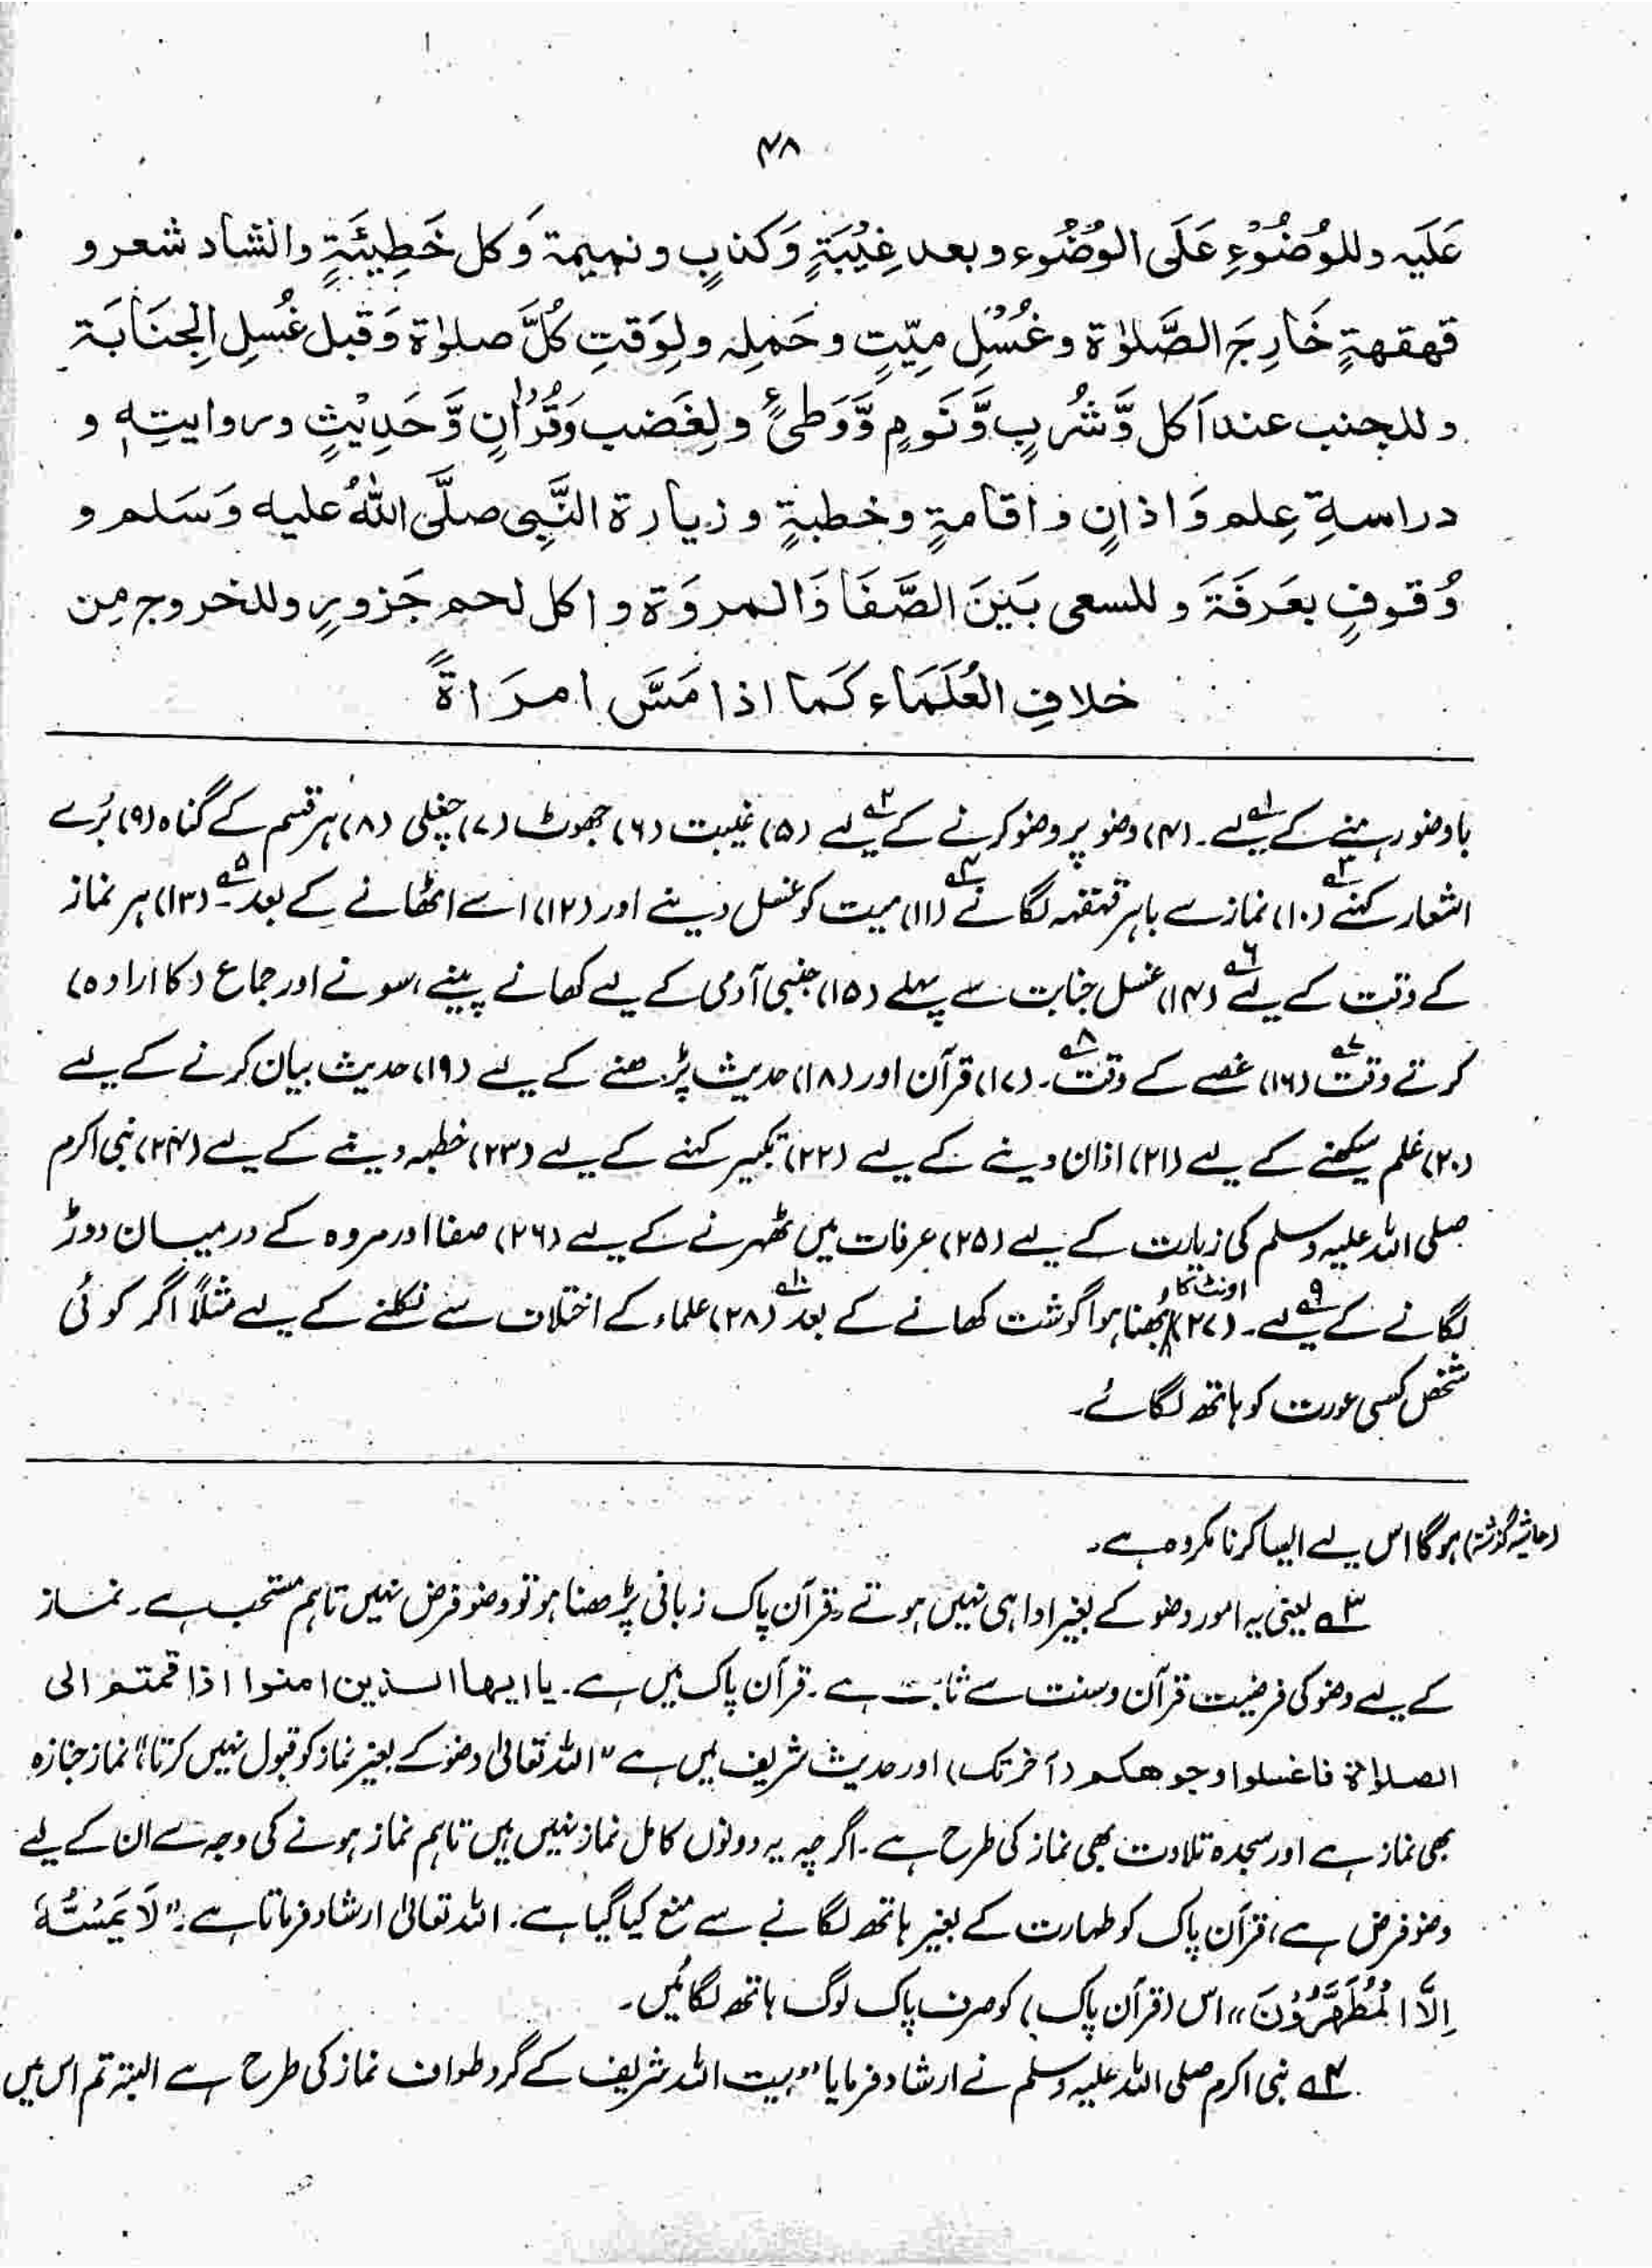 ۴۸
عَلَیہ وللوُضُوْءِ عَلَی الوُضُوء وبعد غِیْبَۃٍ وَکذبٍ ونمیمۃ وَکل خَطِیئَۃٍ وانشاد شعر و
قھقھۃٍ خَارِجَ الصَّلوٰۃ وغُسْلِ مِیّتٍ وحَملِہ ولِوَقتِ کُلَّ صلوٰۃ وَقبل غُسلِ الِجنَابَۃ
وللجنب عند اَکل وَّشُربٍ وَّنَومٍ وَّوَطیءٍ ولِغَضب وَقُرْاٰنٍ وَّحَدِیْثٍ وروایتِہٖ و
دراسۃِ عِلم وَاذانٍ واقامۃٍ وخطبۃٍ وزیارۃ النَّبِی صلَّی اللہُ علیہ وَسَلم و
وُقوفٍ بعَرَفَۃَ وللسعی بَینَ الصَّفَا وَالمروَۃ واکل لحم جَزورٍ وللخروج مِن
خلافِ العُلَمَاء کَما اذا مَسَّ امرَاۃً
باوضو رہنے کے لیے۱؎۔ (۴) وضو پر وضو کرنے کے لیے۲؎ (۵) غیبت (۶) جھوٹ (۷) چغلی (۸) ہر قسم کے گناہ (۹) بُرے
اشعار کہنے۳؎ (۱۰) نماز سے باہر قہقہہ لگانے۴؎ (۱۱) میت کو غسل دینے اور (۱۲) اسے اٹھانے کے بعد۵؎۔ (۱۳) ہر نماز
کے وقت کے لیے۶؎ (۱۴) غسل جنابت سے پہلے (۱۵) جنبی آدمی کے لیے کھانے پینے، سونے اور جماع (کا ارادہ)
کرتے وقت۷؎ (۱۶) غصے کے وقت۸؎۔ (۱۷) قرآن اور (۱۸) حدیث پڑھنے کے لیے (۱۹) حدیث بیان کرنے کے لیے
(۲۰) علم سیکھنے کے لیے (۲۱) اذان دینے کے لیے (۲۲) تکبیر کہنے کے لیے (۲۳) خطبہ دینے کے لیے (۲۴) نبی اکرم
صلی اللہ علیہ وسلم کی زیارت کے لیے (۲۵) عرفات میں ٹھہرنے کے لیے (۲۶) صفا اور مروہ کے درمیان دوڑ
لگانے کے لیے۹؎۔ (۲۷) اونٹ کا بُھنا ہوا گوشت کھانے کے بعد۱۰؎ (۲۸) علماء کے اختلاف سے نکلنے کے لیے مثلاً اگر کوئی
شخص کسی عورت کو ہاتھ لگائے۔
(حاشیہ گذشتہ) ہوگا اس لیے ایسا کرنا مکروہ ہے۔
۳؎ یعنی یہ امور وضو کے بغیر ادا ہی نہیں ہوتے، قرآن پاک زبانی پڑھنا ہو تو وضو فرض نہیں تاہم مستحب ہے۔ نماز
کے لیے وضو کی فرضیت قرآن وسنت سے ثابت ہے۔ قرآن پاک میں ہے۔ یا ایھا الذین امنوا اذا قمتم الی
الصلوٰۃ فاغسلوا وجوھکم (آخر تک) اور حدیث شریف میں ہے "اللہ تعالیٰ وضو کے بغیر نماز کو قبول نہیں کرتا" نماز جنازہ
بھی نماز ہے اور سجدہ تلاوت بھی نماز کی طرح ہے۔ اگرچہ یہ دونوں کامل نماز نہیں ہیں تاہم نماز ہونے کی وجہ سے ان کے لیے
وضو فرض ہے، قرآن پاک کو طہارت کے بغیر ہاتھ لگانے سے منع کیا گیا ہے۔ اللہ تعالیٰ ارشاد فرماتا ہے۔ "لَا یَمَسُّہٗ
اِلَّا الْمُطَھَّرُوْنَ" اس (قرآن پاک) کو صرف پاک لوگ ہاتھ لگائیں۔
۴؎ نبی اکرم صلی اللہ علیہ وسلم نے ارشاد فرمایا "بیت اللہ شریف کے گرد طواف نماز کی طرح ہے البتہ تم اس میں